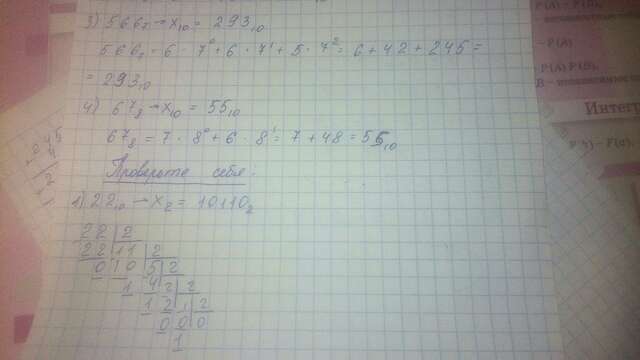 3) 566₇ → x₁₀ = 293₁₀
566₇ = 6 · 7⁰ + 6 · 7¹ + 5 · 7² = 6 + 42 + 245 =
= 293₁₀
4) 67₈ → x₁₀ = 55₁₀
67₈ = 7 · 8⁰ + 6 · 8¹ = 7 + 48 = 55₁₀
Проверьте себя:
1) 22₁₀ → x₂ = 10110₂
22 | 2
22 | 11 | 2
0 | 10 | 5 | 2
1 | 4 | 2 | 2
1 | 2 | 1 | 2
0 | 0 | 0
1
- P(A)
P(A) P(B),
Интегр